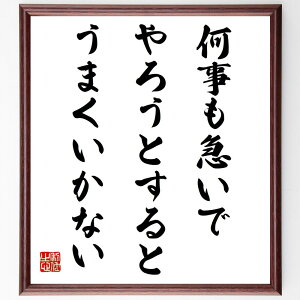 何事も急いで
やろうとすると
うまくいかない